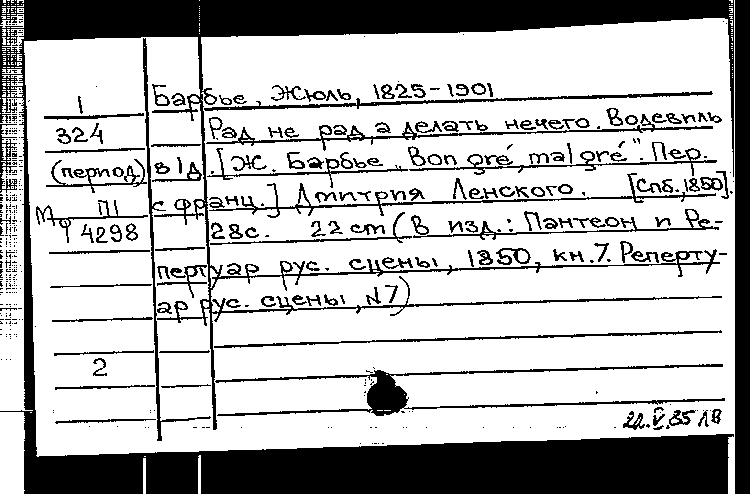 1 Барбье, Жюль, 1825-1901
324 Рад не рад, а делать нечего. Водевиль
(период) в 1 д. [Ж. Барбье „Bon gré, mal gré". Пер.
Мф П1 с франц.] Дмитрия Ленского. [Спб., 1850].
4298 28с. 22 cm (В изд.: Пантеон и Ре-
пертуар рус. сцены, 1850, кн.7. Реперту-
ар рус. сцены, N7)
2
22.V.85 ЛВ